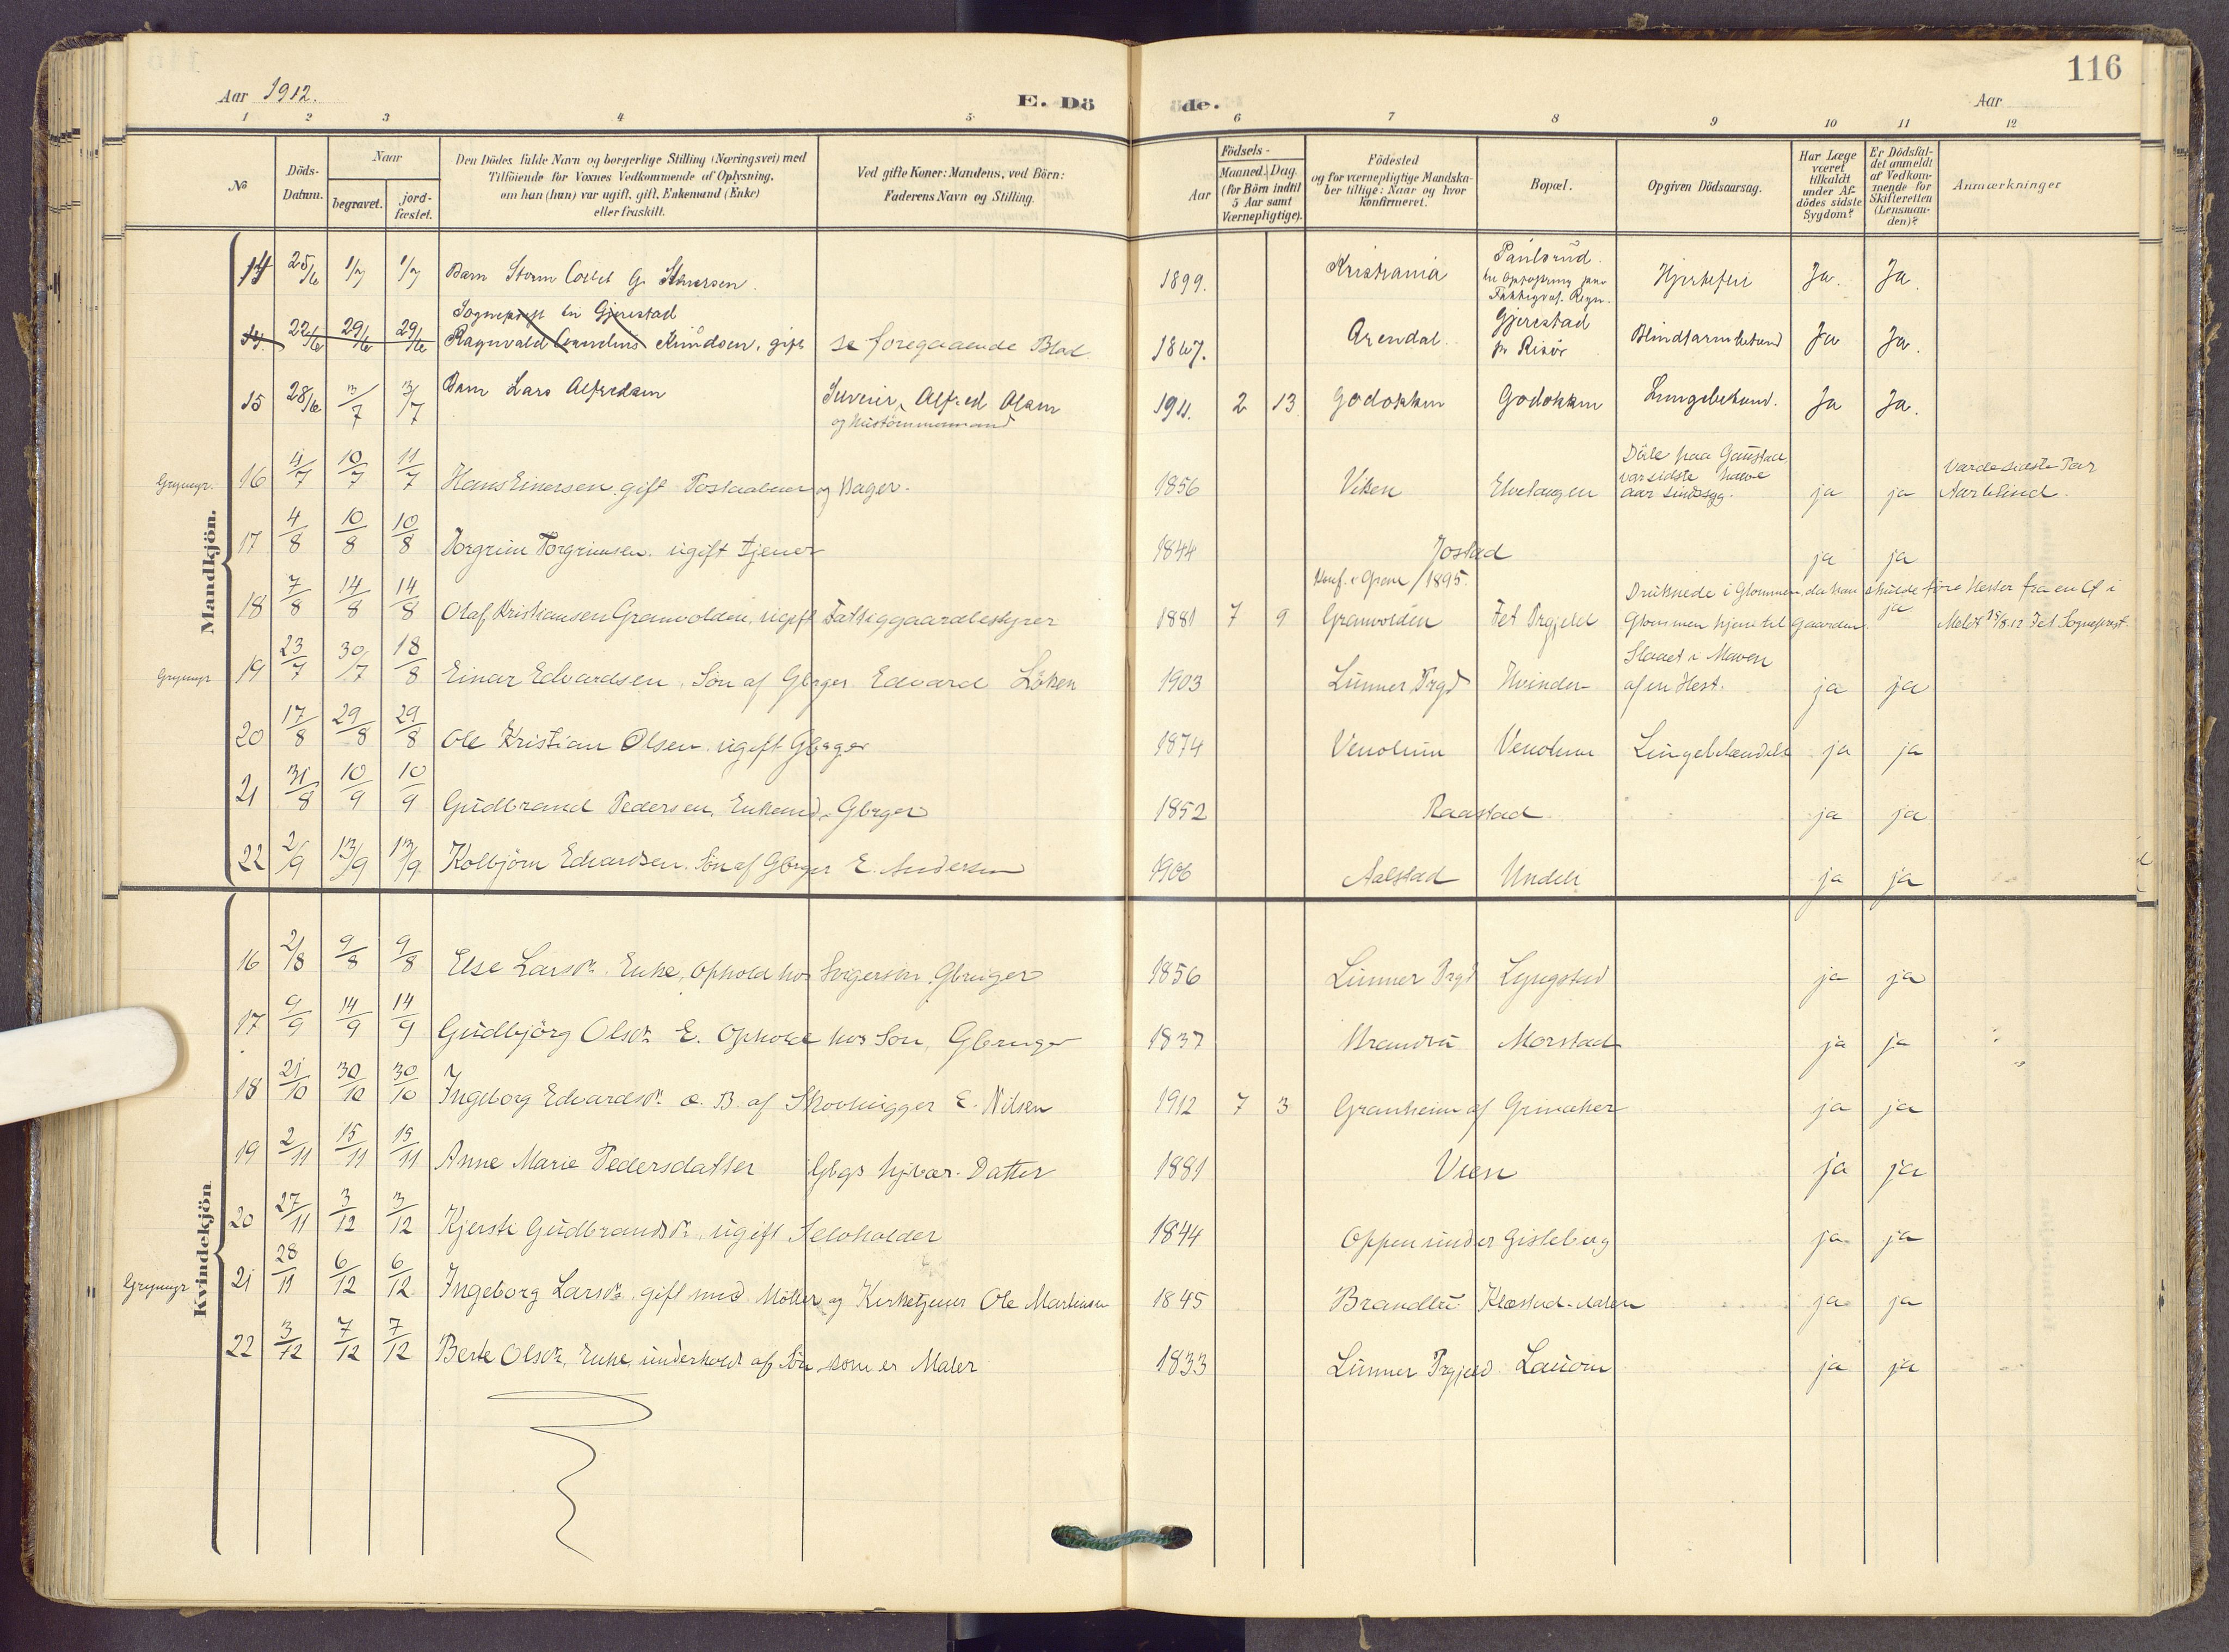 116
Aar 1912.
E. Dö
de.
Aar
1 2 3 4 5 6 7 8 9 10 11 12
№
Döds-Datum.
Naar
begravet.
jord-fæstet.
Den Dödes fulde Navn og borgerlige Stilling (Næringsvei) med
Tilföiende for Voxnes Vedkommende af Oplysning,
om han (hun) var ugift, gift, Enkemand (Enke)
eller fraskilt.
Ved gifte Koner: Mandens, ved Börn:
Faderens Navn og Stilling.
Födsels-
Aar
Maaned. Dag.
(for Börn indtil
5 Aar samt
Værnepligtige).
Födested
og for værnepligtige Mandska-
ber tillige: Naar og hvor
konfirmeret.
Bopæl.
Opgiven Dödsaarsag.
Har Læge
været
tilkaldt
under Af-
dödes sidste
Sygdom?
Er Dödsfal-
det anmeldt
af Vedkom-
mende for
Skifteretten
(Lensman-
den)?
Anmærkninger
Mandkjön.
14 25/6 1/7 1/7 Barn Storm 1899. Kristiania Hjertefeil Ja. Ja.
Sogneprest til Gjerestad
14. 22/6 29/6 29/6 Ragnvald Cornelius Knudsen, gift se foregaaende Blad. 1867. Arendal. Gjerestad pr Risör Blindtarmbetend Ja Ja.
15 28/6 3/7 3/7 Barn Lars Alfredsen Alfred Olsen og Hustömmermand 1911. 2 13 Godokken Godokken Lungebetend. Ja Ja.
Grymyr. 16 4/7 10/7 11/7 Hans Einersen gift og Bager. 1856 Viken Döde paa Gaustad, var sidste halve Aar sindssyg. ja ja var de sidste Par Aar blind.
17 4/8 10/8 10/8 Torgrim Torgrimsen. ugift tjener 1844 Jostad ja ja
18 7/8 14/8 14/8 Olaf Kristiansen Granvolden, ugift Fattiggaardbestyrer 1881 7 9 Konf. i Gran /1895. Granvolden Fet Prgjeld Druknede i Glommen, da han skulde före Hester fra en Ö i Glommen hjem til Gaarden. ja Meldt 15/8.12 Fet Sogneprest.
Grymyr 19 23/7 30/7 18/8 Einar Edvardsen, Sön af Gbrger Edvard Löken 1903 Lunner Prgd Hvinden Slaaet i Maven af en Hest. ja ja
20 17/8 29/8 29/8 Ole Kristian Olsen. ugift Gbrger 1874 Venolum Venolum Lungebetændelse ja ja
21 31/8 10/9 10/9 Gudbrand Pedersen, Enkemd. Gbrger 1852 Raastad ja ja
22 2/9 13/9 13/9 Kolbjörn Edvardsen. Sön af Gbrger E. Andersen 1906 Aalstad Undeli ja ja
Kvindekjön
16 2/8 9/8 9/8 Else Larsdr. Enke, ophold hos Svigersön Gbruger 1856 Lunner Prgd Lyngstad ja ja
17 9/9 14/9 14/9 Gudbjörg Olsdr. E. Ophold hos Sön, Gbruger 1837 Brandbu Morstad ja ja
18 21/10 30/10 30/10 Ingeborg Edvardsdr. æ. B. af Skovhugger E. Nilsen 1912 7 3 Granheim af Grinaker ja ja
19 2/11 15/11 15/11 Anne Marie Pedersdatter Gbgs hjvær. Datter 1881 Vien ja ja
20 27/11 3/12 3/12 Kjersti Gudbrandsdr., ugift Selvholder 1844 Oppen under Gisleberg ja ja
Grymyr 21 28/11 6/12 6/12 Ingeborg Larsdr. gift med Möller og Kirketjener Ole Martinsen 1845 Brandbu Klæstad-dalen ja ja
22 3/12 7/12 7/12 Berte Olsdr., Enke, underholdt af Sön som er Maler 1833 Lunner Prgjeld Lauorn ja ja